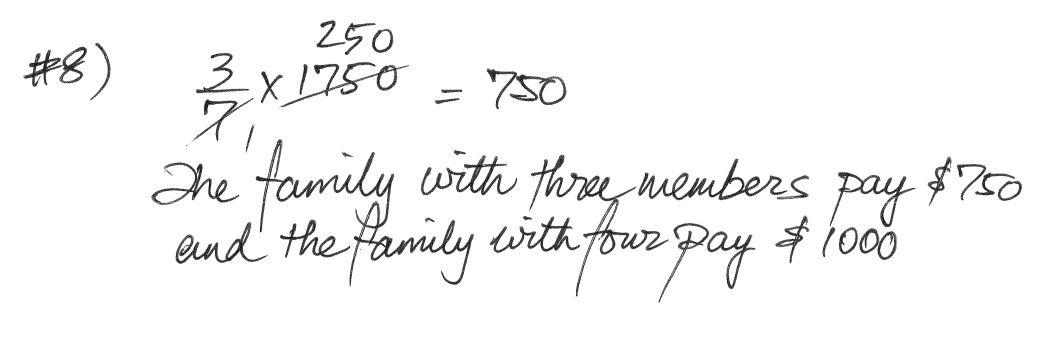 #8)
250
3/7 x 1750 = 750
1
The family with three members pay $750
and the family with four pay $1000